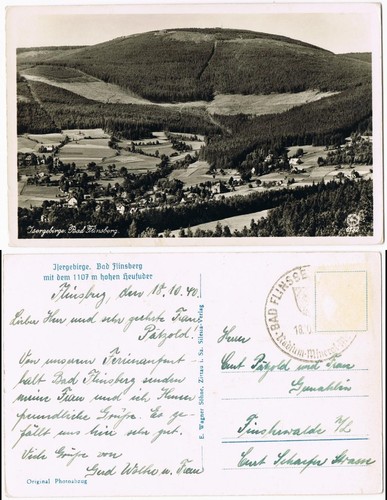 Isergebirge. Bad Flinsberg.
Isergebirge. Bad Flinsberg
mit dem 1107 m hohen Heufuder
Flinsbrg, den 18.10.40.
Lieber Herr und sehr geehrte Frau
Pätzold!
Von unserem Ferienaufent-
halt Bad Flinsberg senden
meine Frau und ich Ihnen
freundliche Grüße. Es ge-
fällt uns hier sehr gut.
Viele Grüße von
und Frau
Original Photoabzug
E. Wagner Söhne, Zittau i. Sa.
BAD FLINSB
18.
Radium-
Herrn
Curt Pätzold und Frau
Gemahlin
Finsterwalde N/L
Curt Scheefer Strasse